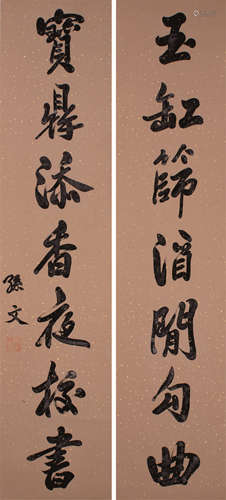 玉缸篩閒勾曲
寶鼎添香夜校書
孫文